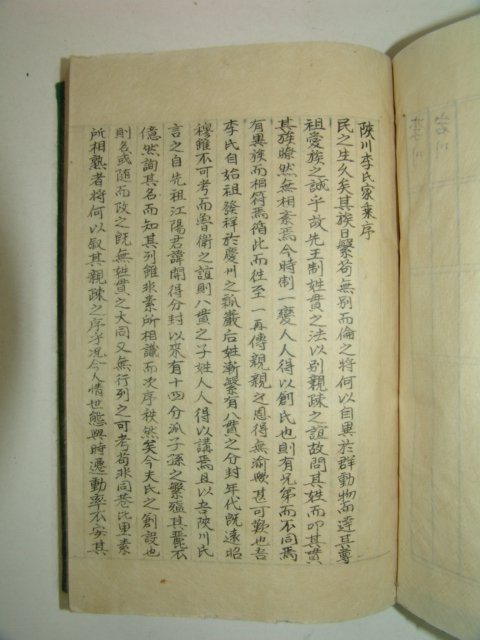 陜川李氏家乘序
民之生久矣其族日繁苟無別而倫之將何以自異於群動物而達其尊
祖愛族之誠乎故先王制姓貫之法以別親疎之誼故問其姓而叩其貫
其族瞭然無相紊焉今時制一變人人得以創氏也則有兄弟而不同焉
有異族而相符焉循此而往至一再傳親親之恩得無渝歟甚可歎也吾
李氏自始祖發祥於慶州之瓢巖后姓漸繁有八貫之分封年代旣遠昭
穆雖不可考而魯衛之誼則八貫之子姓人人得以講焉且以吾陜川氏
言之自先祖江陽君諱開得分封以來有十四分派子孫之繁殖其麗不
億然詢其名而知其列雖非素所相識而次序秩然矣今夫氏之創設也
則名或隨而改之旣無姓貫之大同又無行列之可考苟非同巷比里素
所相熟者將何以叙其親疎之序乎況今人情世態與時遷動率不安其